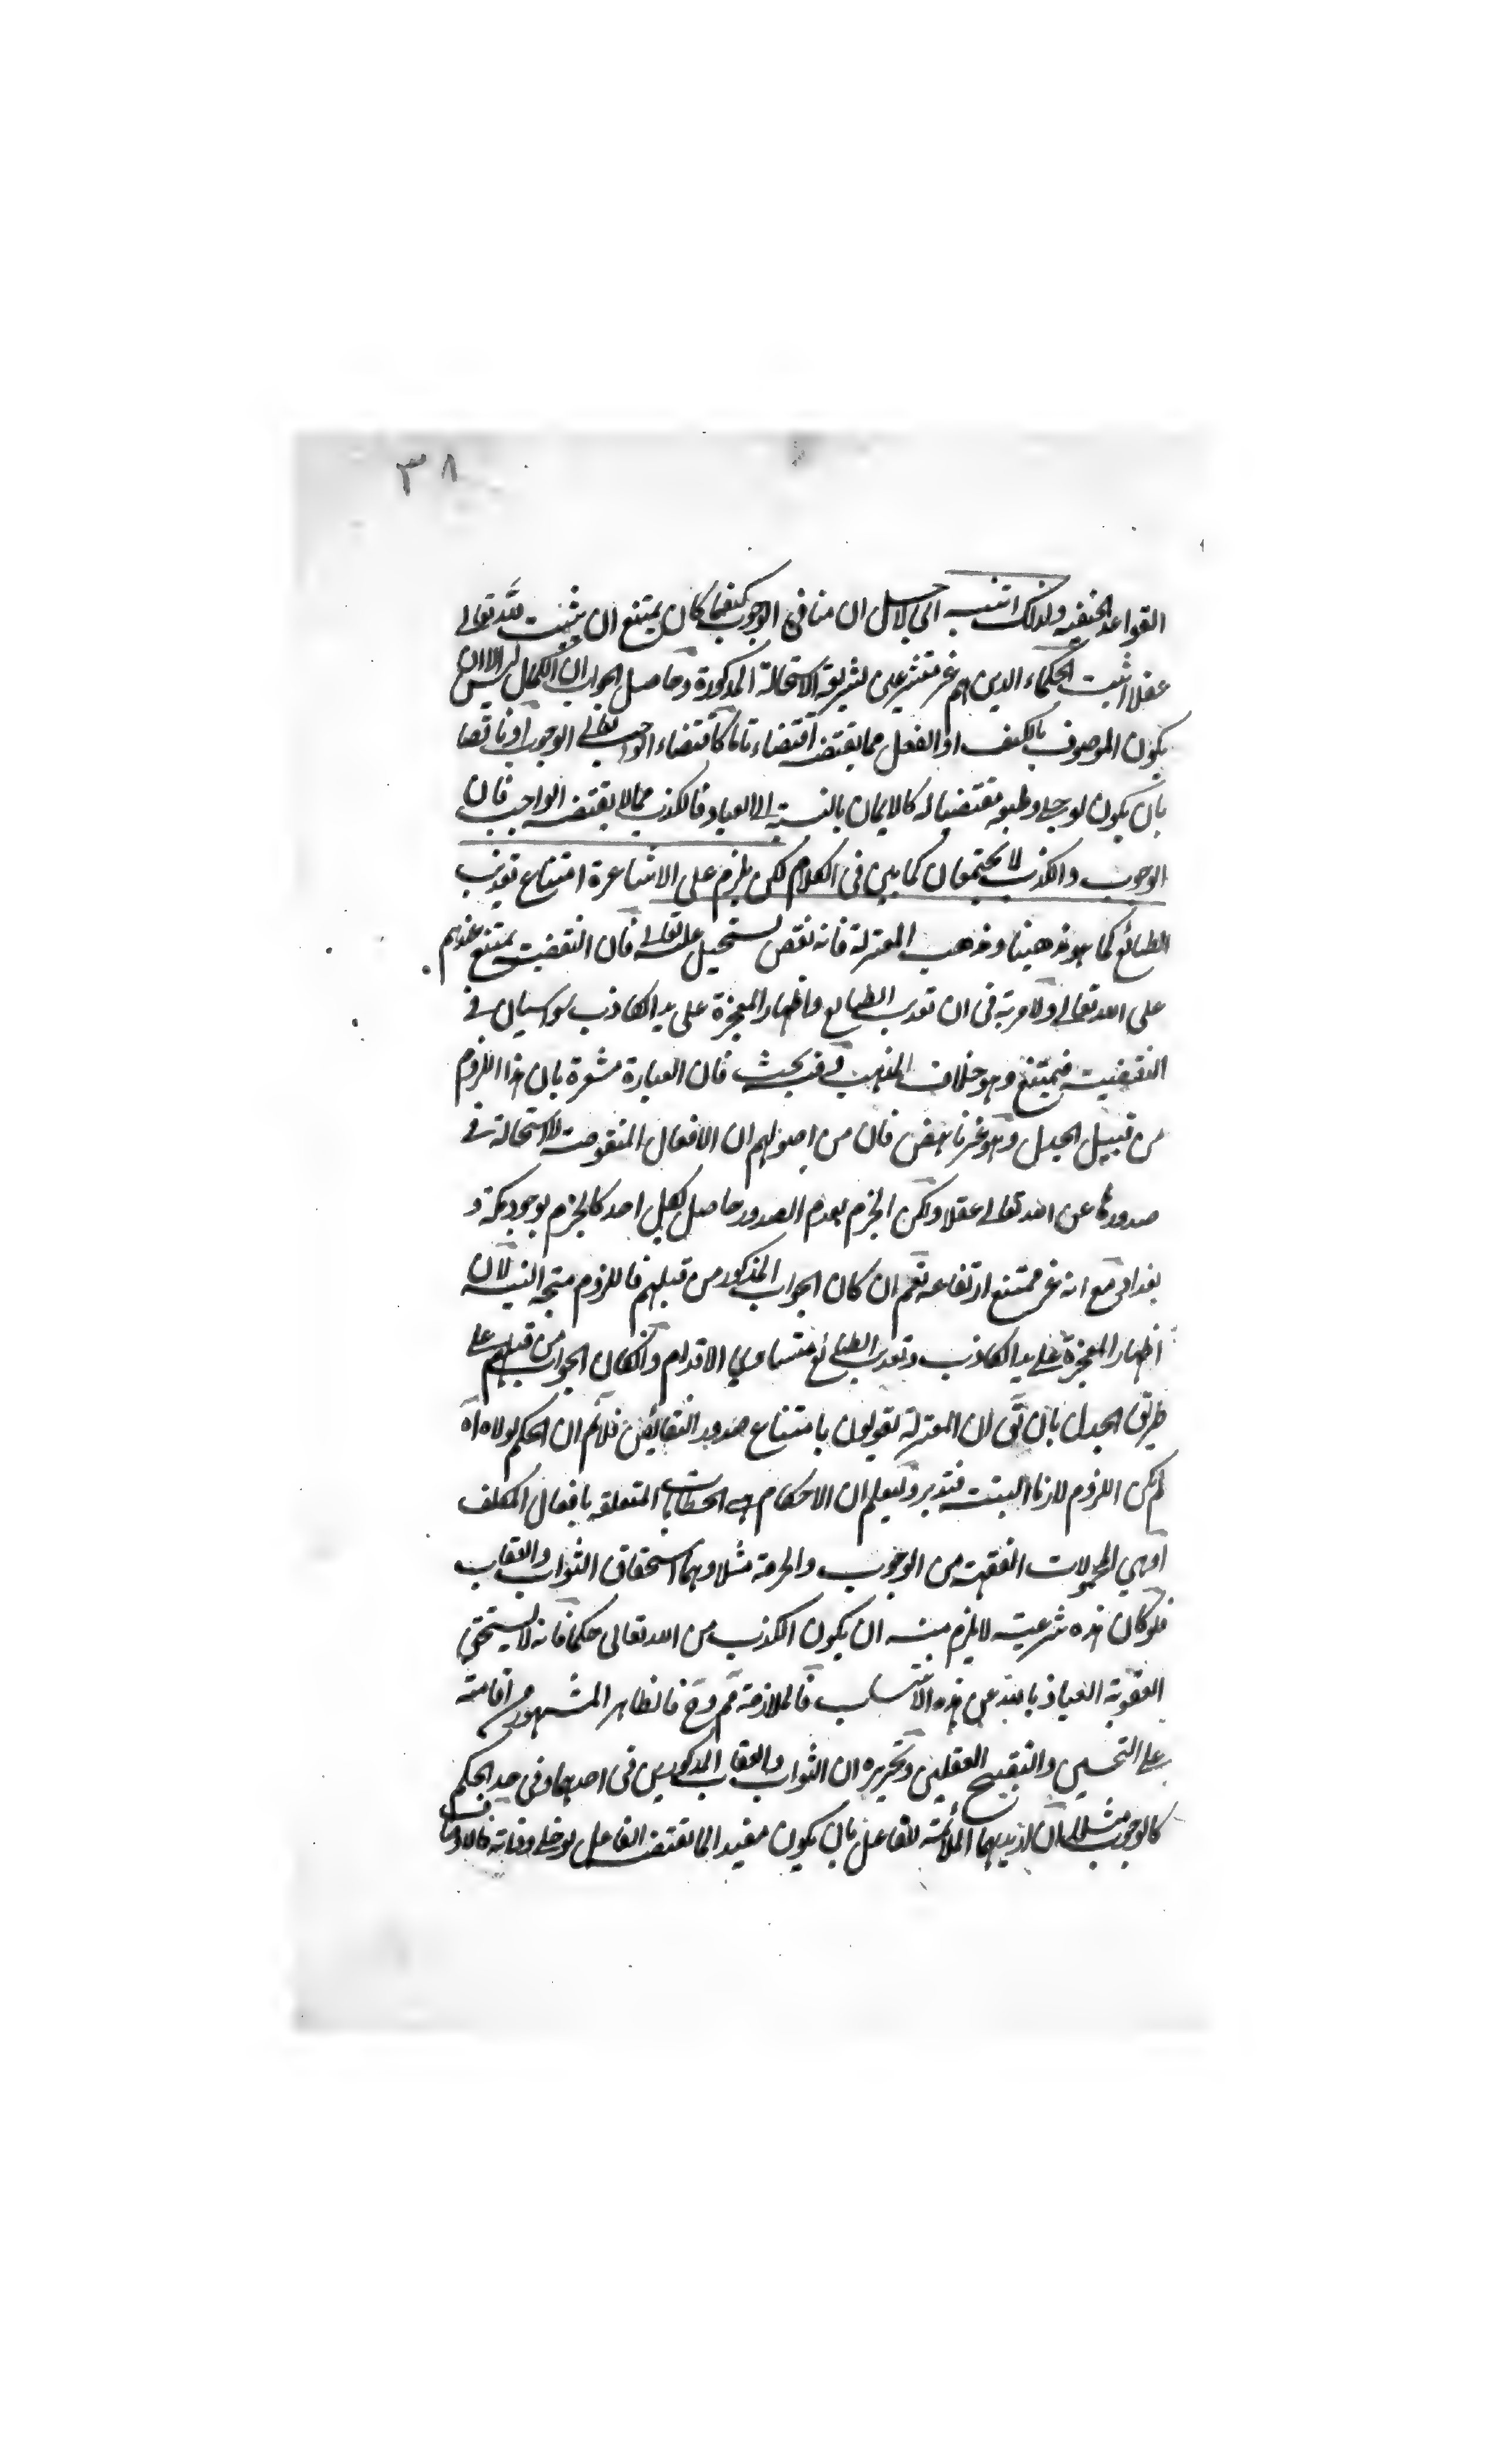 ٣٨
القواعد الحنفية ولذلك انتسبه اي لاجل ان منافي الوجوب كيفما كان يمتنع ان يثبت لله تعالى
عقلا اثبت الحكماء الذين هم غير متشرعين لشريعة الاستحالة المذكورة وحاصل الجواب ان الكمال ليس الا ان
يكون الموصوف بالكيف او الفعل مما يقتضيه اقتضاء تاما كاقتضاء الواجب تعالى الوجوب او ناقصا
بان يكون لو خلي وطبعه مقتضيا له كالايمان بالنسبة الى العباد فالكذب مما لا يقتضيه الواجب فان
الوجوب والكذب لا يجتمعان كما بين في الكلام لكن يلزم على الاشاعرة امتناع تعذيب
الطائع كما هو مذهبنا ومذهب المعتزلة فانه نقص يستحيل عليه تعالى فان النقصية يمتنع عندهم
على الله تعالى ولا مرية في ان تعذيب الطايع واظهار المعجزة على يد الكاذب سواسيان في
النقيضية فيمتنع وهو خلاف المذهب وفيه بحث فان العبارة مشعرة بان هذا اللزوم
من قبيل الجدل وهو غير ناهض فان من اصولهم ان الافعال المنقوصة لا استحالة في
صدورها عن الله تعالى عقلا ولكن الجزم بعدم الصدور حاصل لكل احد كالجزم بوجود مكة و
بغداد مع انه غير ممتنع ارتفاعه نعم ان كان الجواب المذكور من قبلهم فاللزوم متجه اليه لان
اظهار المعجزة على يد الكاذب وتعذيب الطائع متساوي الاقدام وان كان الجواب من قبلهم على
طريق الجدل بان يق ان المعتزلة يقولون بامتناع صدور النقائص فلا نم ان الحكم لولاه اه
لم يكن اللزوم لازما البتة فتدبر وليعلم ان الاحكام هي الخطابات المتعلقة بافعال المكلف
او هي المحمولات الفقهية من الوجوب والحرمة مثلا وهما استحقاق الثواب والعقاب
فلو كان هذه شرعية لا يلزم منه ان يكون الكذب من الله تعالى حكما فانه لا يستحق
العقوبة العياذ بالله عن هذه الانتساب فالملازمة مم وح فالظاهر المشهور من اقامته
على التحسين والتقبيح العقليين وتحريره ان الثواب والعقاب المذكورين في احدهما وفي حد الحكم
كالوجوب مثلا ان اريد بهما الملائمة للفاعل بان يكون مفيدا لما يقتضيه الفاعل لو خلي وذاته